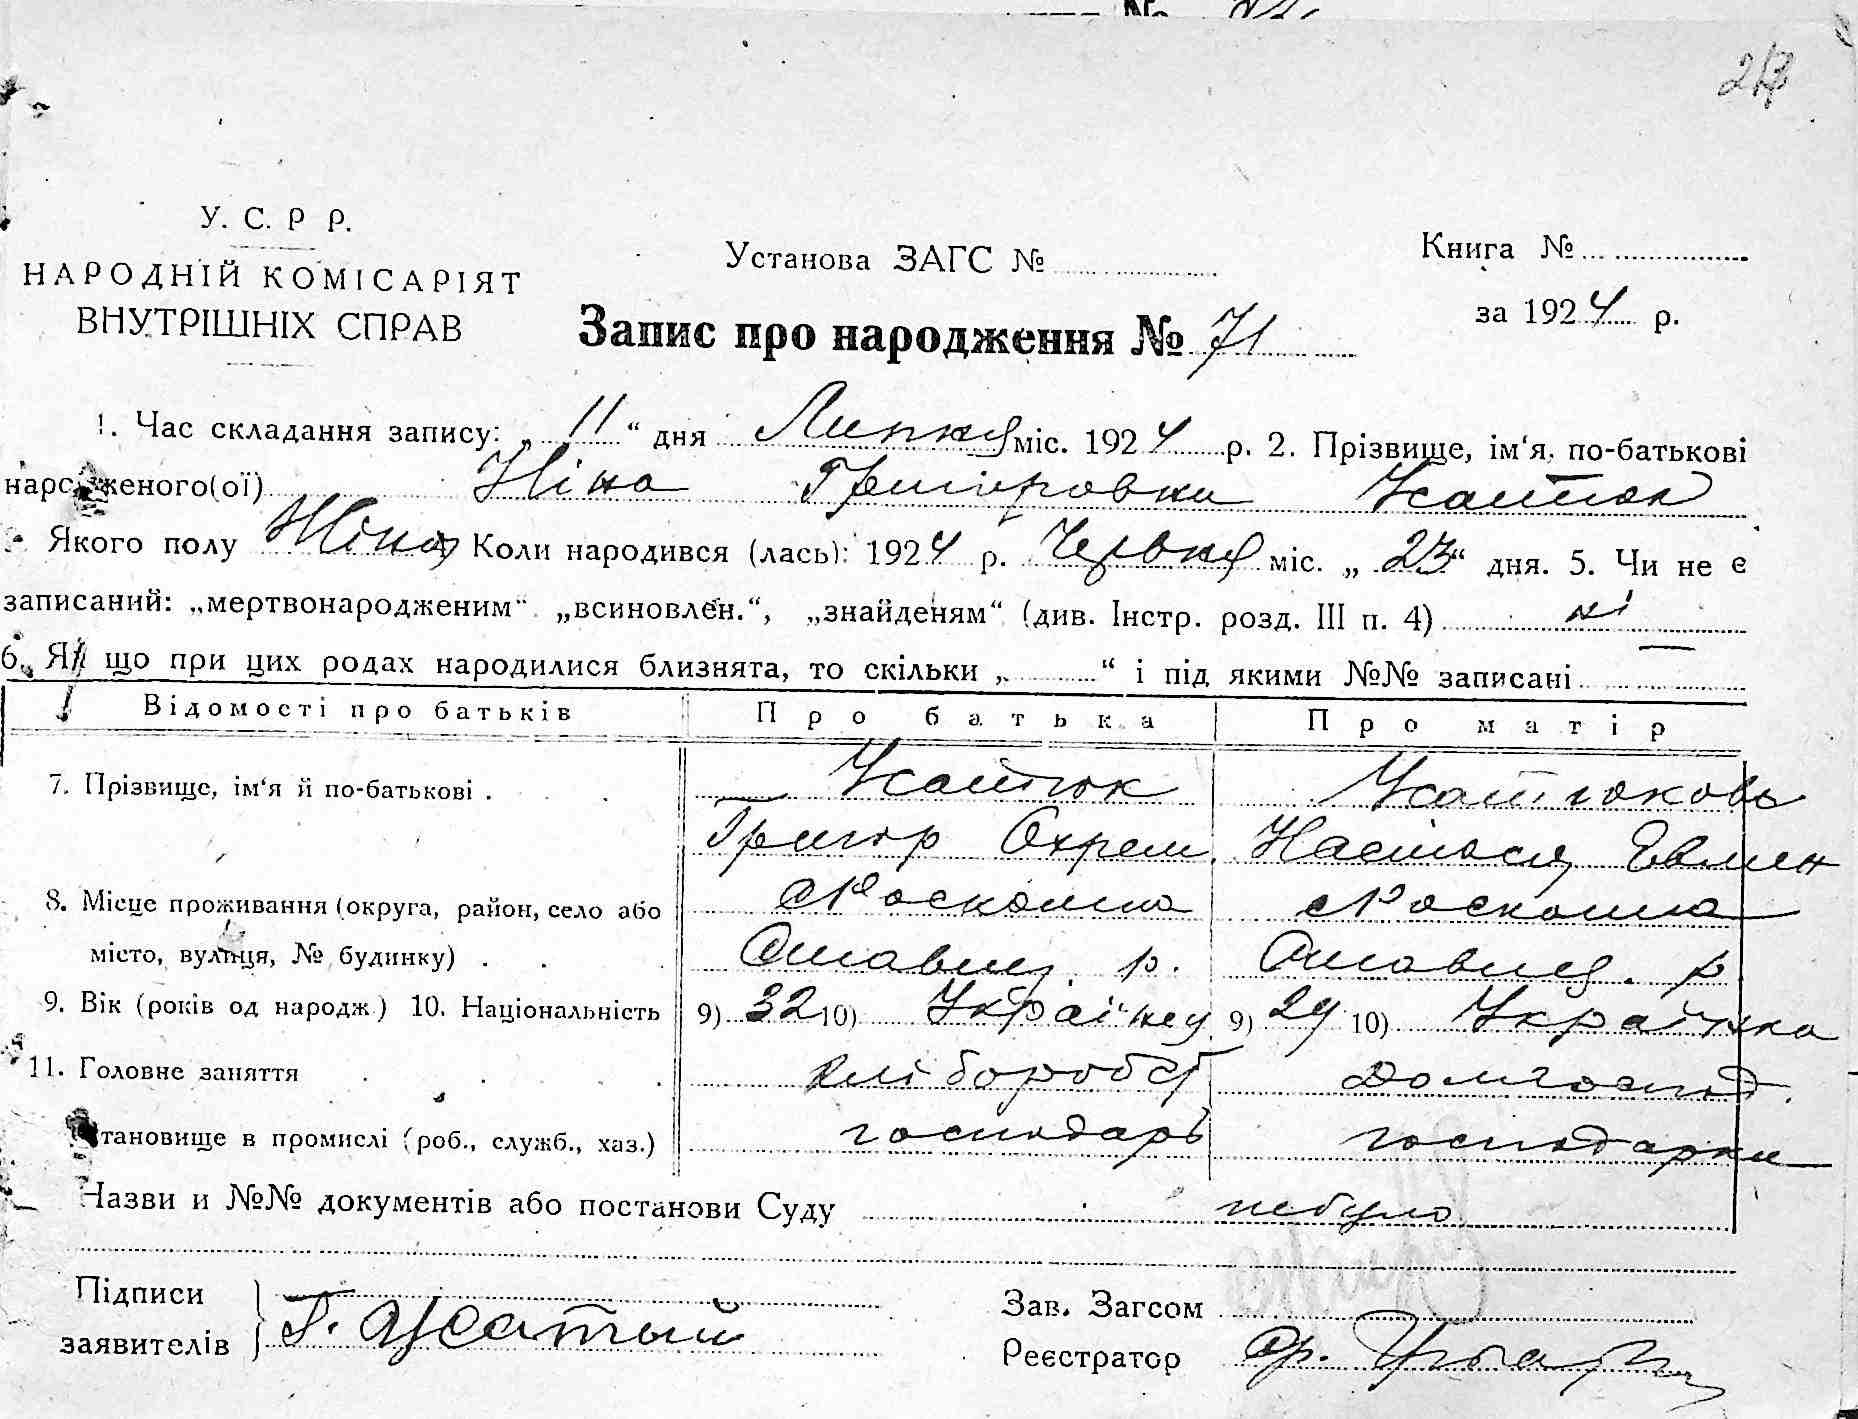 У. С. Р Р.
НАРОДНІЙ КОМІСАРІЯТ
ВНУТРІШНІХ СПРАВ
Установа ЗАГС №
Книга №
за 1924 р.
Запис про народження № 71
1. Час складання запису: „ 11 “ дня Липня міс. 1924 р. 2. Прізвище, ім‘я, по-батькові
народженого(ої) Ніна Григоровна
Якого полу Жіноч Коли народився (лась): 1924 р. Червня міс. „ 23 “ дня. 5. Чи не є
записаний: „мертвонародженим“ „всиновлен.“, „знайденям“ (див. Інстр. розд. III п. 4) ні
6. Як що при цих родах народилися близнята, то скільки „ “ і під якими №№ записані
Відомості про батьків Про батька Про матір
7. Прізвище, ім‘я й по-батькові .
Григор Охрем. Настася Евмен
8. Місце проживання (округа, район, село або Роскошна Роскошна
місто, вулиця, № будинку) . р. р.
9. Вік (років од народж.) 10. Національність 9) 32 10) Українец 9) 29 10) Українка
11. Головне заняття хлібороб Домгоспод.
тановище в промислі (роб., служб., хаз.) господарь господарки
Назви и №№ документів або постанови Суду небуло
Підписи
заявителів Г.
Зав. Загсом
Реєстратор